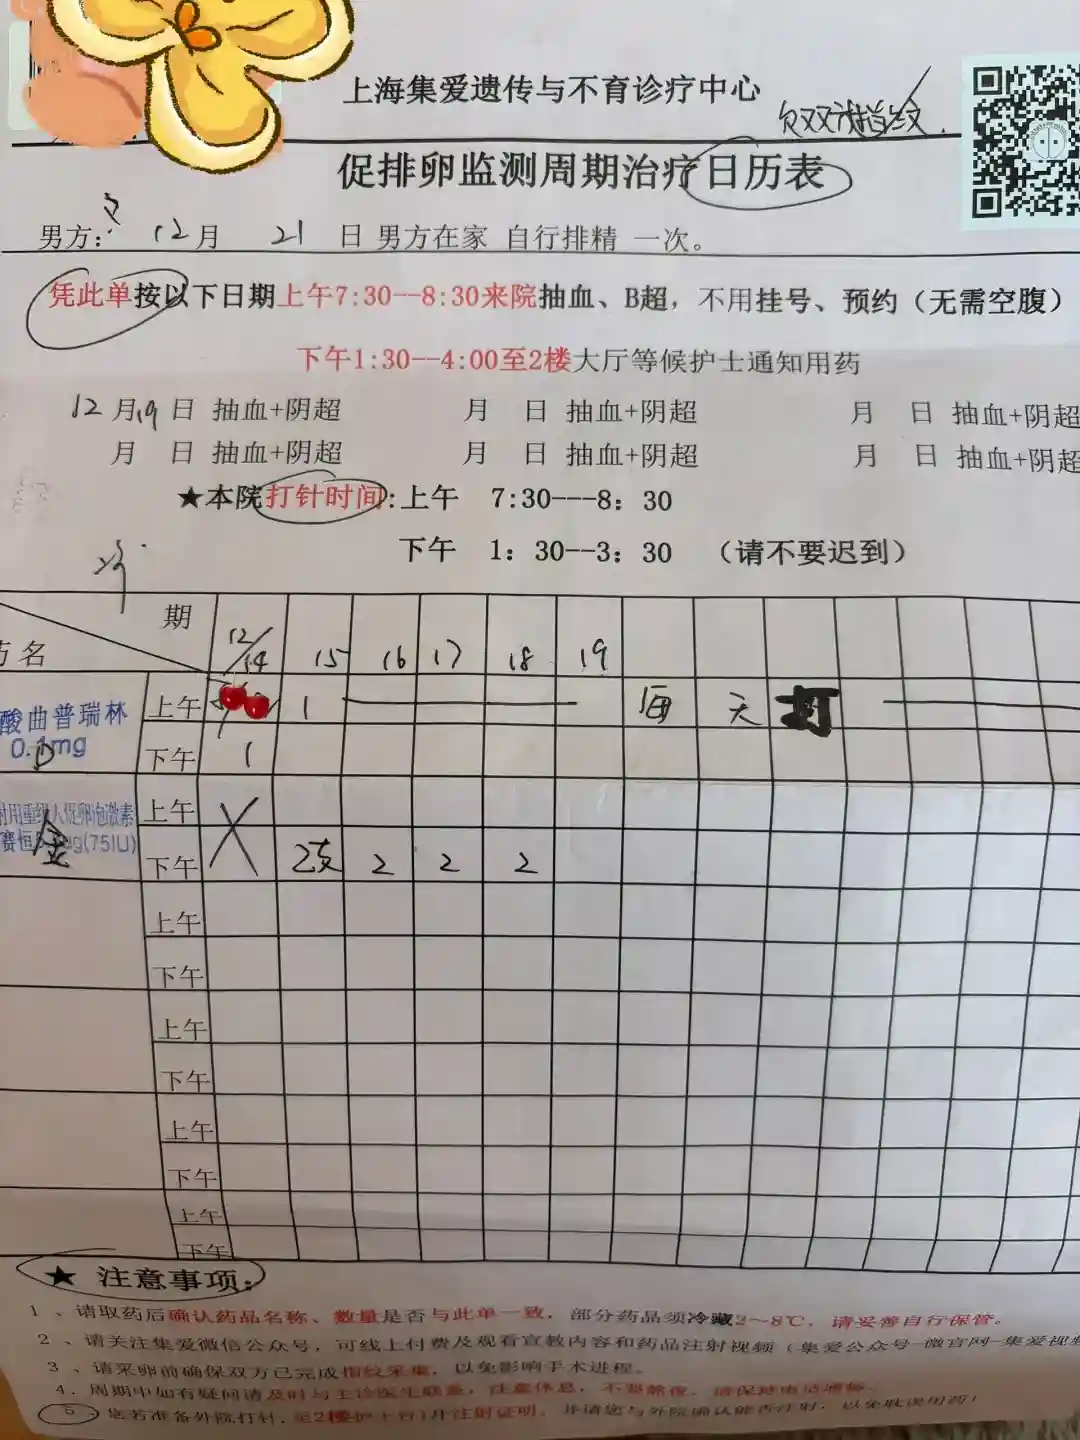 上海集爱遗传与不育诊疗中心
促排卵监测周期治疗日历表
男方: 12月 21 日 男方在家 自行排精 一次。
凭此单按以下日期上午7:30--8:30来院抽血、B超，不用挂号、预约（无需空腹）
下午1:30--4:00至2楼大厅等候护士通知用药
12月19日 抽血+阴超 月 日 抽血+阴超 月 日 抽血+阴超
月 日 抽血+阴超 月 日 抽血+阴超 月 日 抽血+阴超
★本院打针时间:上午 7:30---8：30
下午 1：30--3：30 （请不要迟到）
期
名 12/14 15 16 17 18 19
酸曲普瑞林 上午 1 每 天 打
0.1mg 下午 1
射用重组人促卵泡激素 上午
赛恒 (75IU) 金 下午 2支 2 2 2
上午
下午
上午
下午
上午
下午
上午
下午
★ 注意事项:
1 、请取药后确认药品名称、数量是否与此单一致，部分药品须冷藏2～8℃，请妥善自行保管。
2 、请关注集爱微信公众号，可线上付费及观看宣教内容和药品注射视频（集爱公众号-微官网-集爱视频
3 、请采卵前确保双方已完成指纹采集，以免影响手术进程。
4 、周期中如有疑问请及时与主诊医生联系，注意休息，不要熬夜，请保持电话通畅。
5 、您若准备外院打针，至2楼护士台开注射证明，并请您与外院确认能否注射，以免耽误用药!